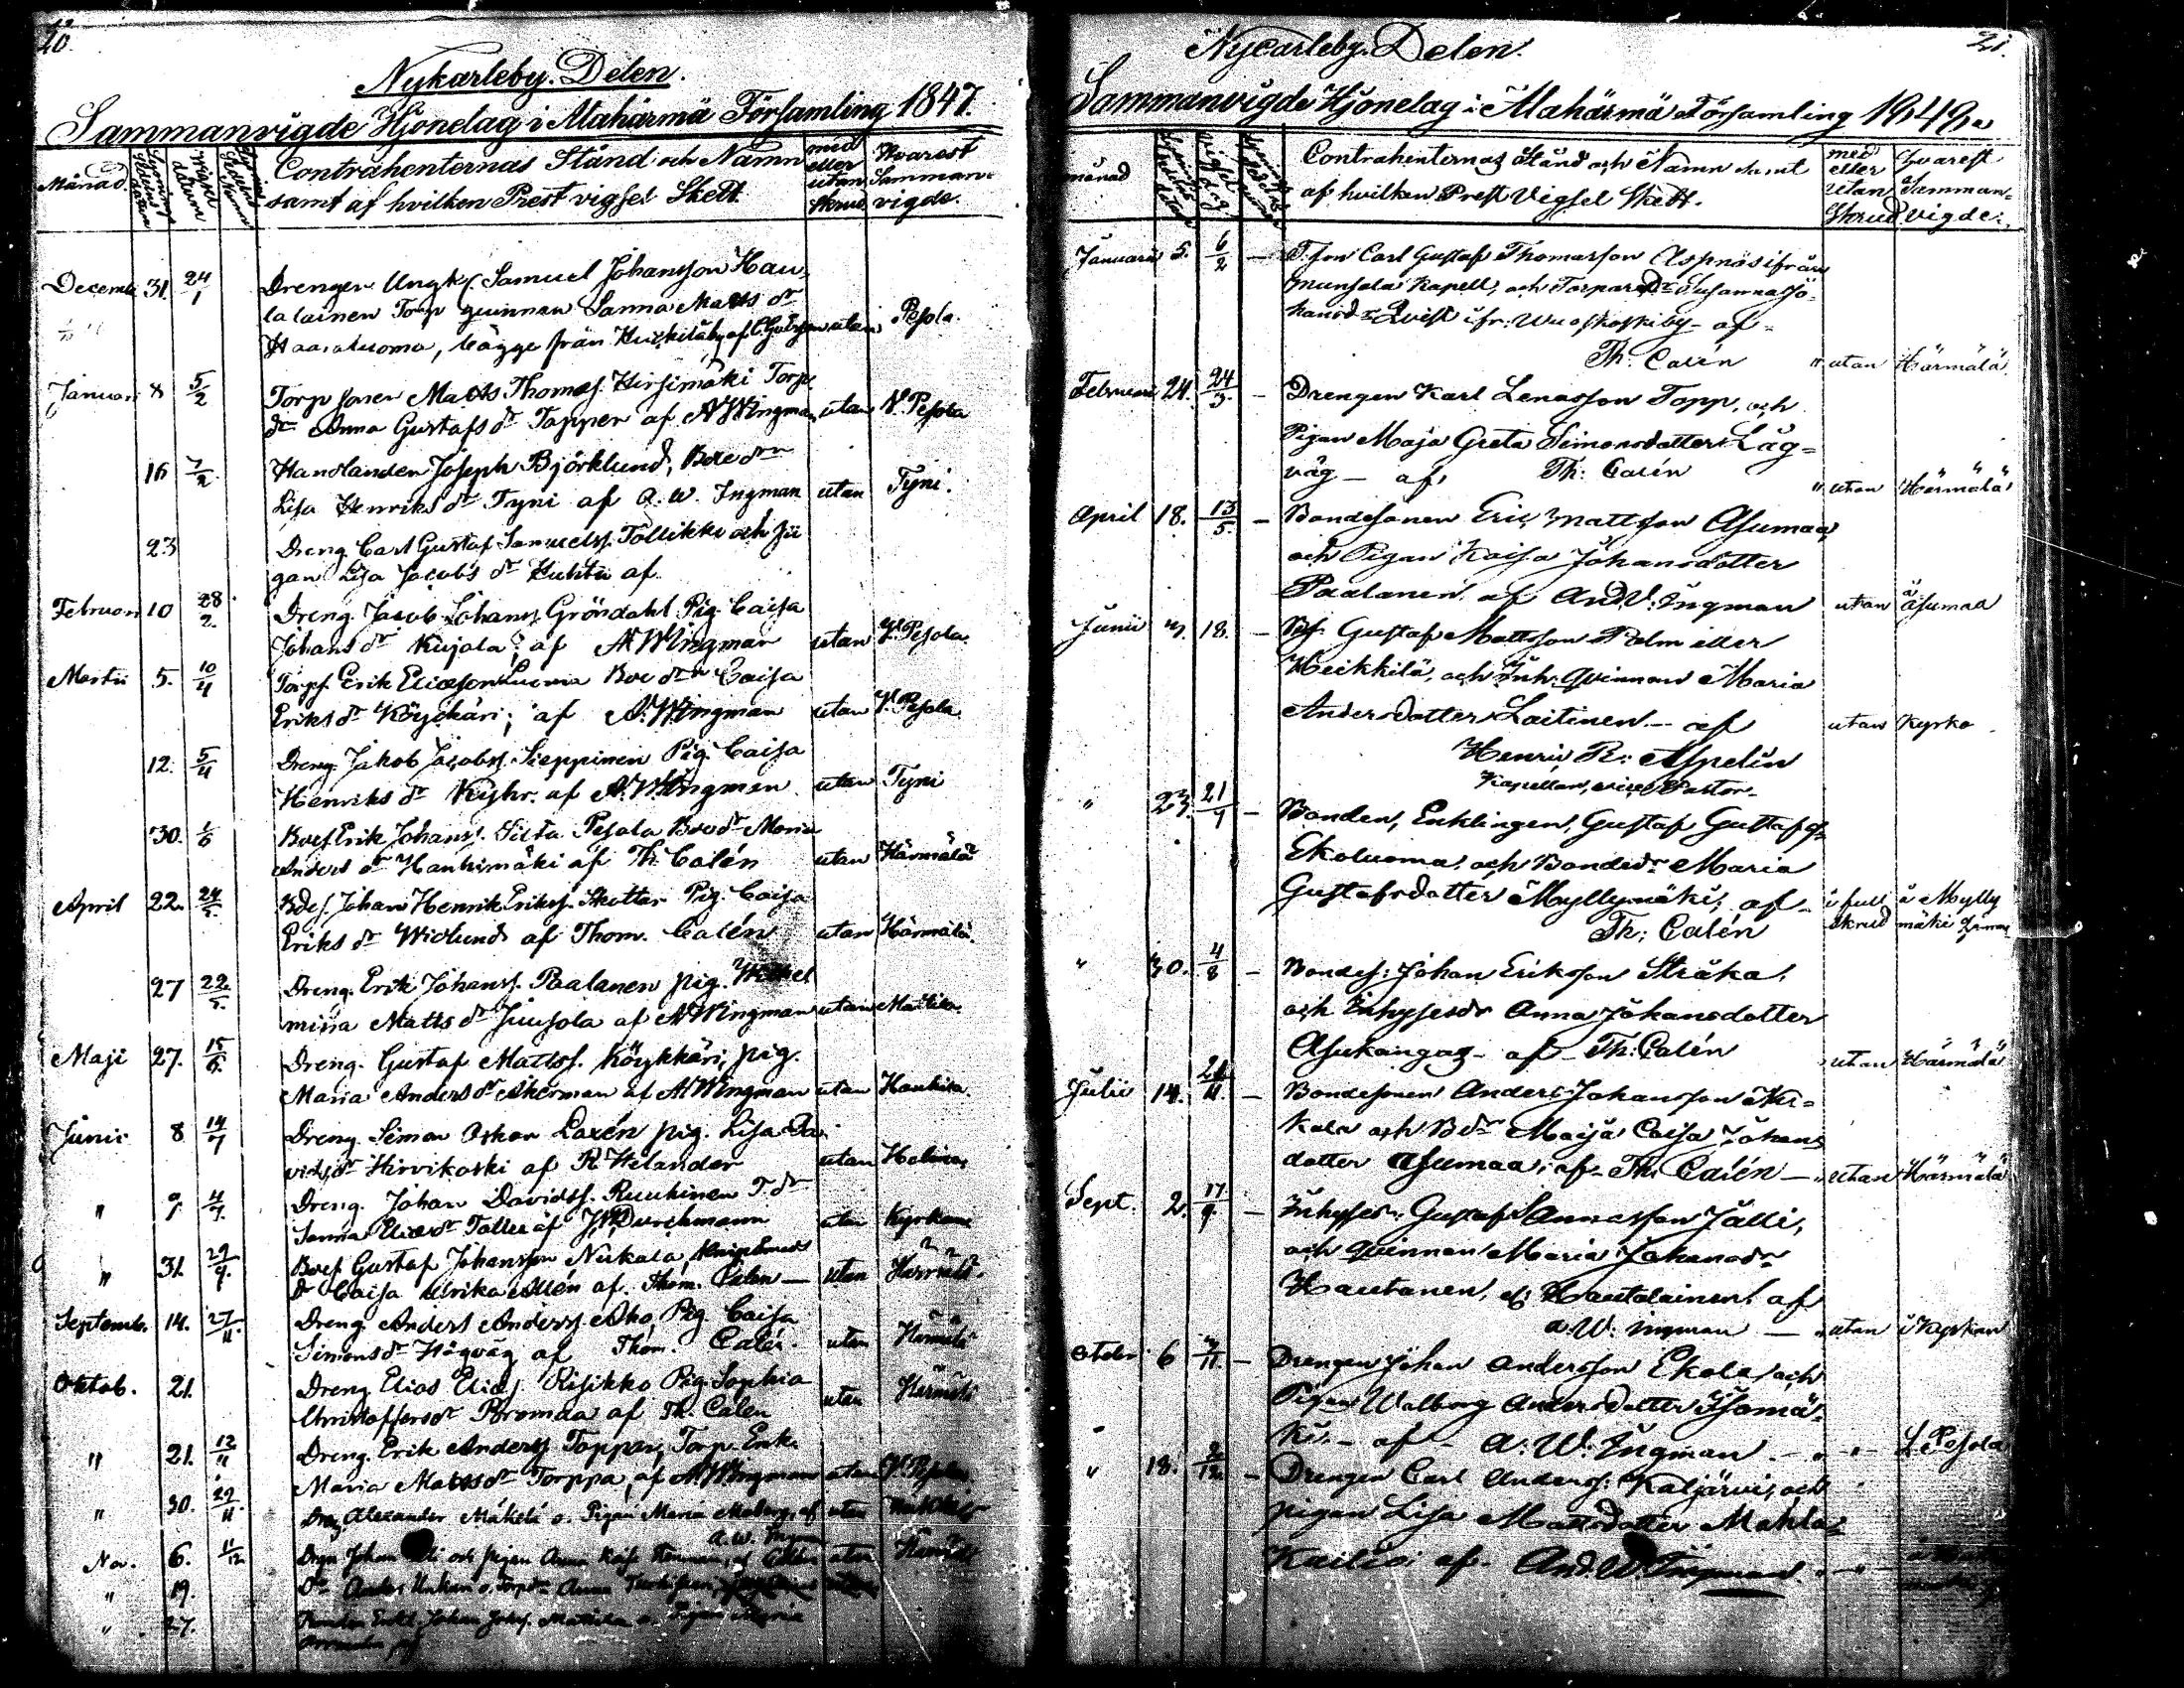 20.
Nykarleby. Delen.
Sammanvigde Hjonelag i Alahärmä Församling 1847.
Månad
Contrahenternas Stånd och Namn
samt af hvilken Prest vigsel Skett.
med eller utan Skrud
Hvarest Sammanvigde.
Decemb. 31. 24/1 Drengen Ungk. Samuel Johansson Hau-
talainen Torp quinnan Sanna Matts dr
Haaraluoma, bägge från utan Pesola.
Januari 8 5/2 Torp sonen Matts Thomas. Hirsimäki Torp.
dr Anna Gustafs dr Topper af A W Ingman utan Y. Pesola
16 7/2. Handlanden Joseph Björklund, Bde dr
Lisa Henriks dr Tyni af A. W. Ingman utan Tyni.
23 Dreng Carl Gustaf Samuelss. Tollikko och Pi
gan Lisa Jacobs dr Huhta af
Februari 10 28/2. Dreng. Jacob Johanss. Gröndahl Pig. Caisa
Johans dr Kujala, af A W Ingman utan Y. Pesola.
Martii 5. 10/4 Torps. Erik Eliasson Luoma Bde dr Caisa
Eriks dr Köyckäri; af A. W. Ingman utan Y. Pesola
12. 5/4 Dreng Jakob Jacobss. Sieppinen Pig. Caisa
Henriks dr af A. W. Ingman utan Tyni
30. 1/6 Bdes. Erik Johanss. Pesola Bde dr Maria
Anders dr Hanhimäki af Th. Calén utan Härmälä
April 22. 24/5. Bdes. Johan Henrik Erikss. Skottar Pig. Caisa
Eriks dr Widlund af Thom. Calén utan Härmälä.
27 22/5. Dreng. Erik Johanss. Paalanen pig. Wilhel
mina Matts dr Juusola af A W Ingman utan Mattila.
Maji 27. 15/6. Dreng. Gustaf Mattss. Köykkäri; pig.
Maria Anders dr Åkerman af A W Ingman utan
Junii 8 14/7 Dreng. Simon Oskar Laxén pig. Lisa Da
vids dr Hirvikoski af R Helander utan
" 9 4/7. Dreng. Johan Davidss. Ruuhinen T. dr
Sanna Elias dr af J. Durchmann utan Kyrkan
" 31. 29/9. Bdes. Gustaf Johansson Niskala,
dr Caisa Ulrika Allén af Thom. Calen — utan Härmälä.
Septemb. 14. 27/11. Dreng Anders Anderss. Aho, Pig. Caisa
Simons dr Högväg af Thom. Calén. utan Härmälä
Oktob. 21. Dreng Elias Elias. Risikko Pig. Sophia
Christoffers dr Poromaa af Th. Calen utan Härmälä
" 21. 12/11 Dreng. Erik Anderss. Topper, Torp. Enk.
Maria Matts dr Torppa, af A W Ingman utan Y. Pesola
" 30. 29/11. Dreng Alexander Mäkelä o. Pigan Maria af utan
A. W. Ingman
Nov. 6. 11/12 Dren Johan och pigan Anna Kajsa af utan Härmälä
" 19.
" 27. Johan Josefs. Mattila o. Pigan Maria
21.
Nycarleby. Delen.
Sammanvigde Hjonelag i Alahärmä Församling 1848.
månad
Contrahenternas Stånd och Namn samt
af hvilken Prest Vigsel Skett.
med eller utan Skrud
Hvarest Samman-vigde.
Januari 5. 6/2 — T. son Carl Gustaf Thomasson Aspnäs ifrån
Munsala Kapell, och Torpare Dr Susanna Jo-
hansdr Qvist ifr. Wuoskoski by - af -
Th. Calén " utan Härmälä.
Februari 24. 24/3. — Drengen Karl Lenasson Topp, och
Pigan Maja Greta Simonsdotter Låg-
väg — af Th. Calén " utan Härmälä
April 18. 13/5. — Bondesonen Eric Mattsson Asumaa,
och Pigan Kaisa Johansdotter
Paalanen, af And. V. Ingman utan å Asumaa
Junii 3. 18. — Gustaf Mattsson Palm eller
Heikkilä, och Inh. Qvinnan Maria
Andersdotter Laitinen — af utan Kyrko
Henric R: Aspelin
Kapellan, vice Pastor.
" 23. 21/7 — Bonden, Enklingen, Gustaf Gustafs
Ekoluoma, och Bondedr Maria
Gustafsdotter Myllymäki, af - i full å Mylly
Th. Calén skrud mäki
" 30. 4/8 — Bondes: Johan Eriksson Sträka,
och Inhysesdr Anna Johansdotter
Asukangas - af - Th. Calén utan Härmälä
Julii 14. 21/11. — Bondesonen Anders Johansson Ni-
kala och Bdr Maija Caisa Johans
dotter Asumaa, af - Th. Calén — " utan Härmälä
Sept. 2. 17/9. — Inhyses: Gustaf Annasson Jälli,
och Qvinnan Maria Johansdr
Hautanen, el. Hautalainen, af
A. W: Ingman — " utan i Kyrkan
Octobr 6 3/11. — Drengen Johan Andersson Ekola, och
Pigan Walborg Andersdotter Isomä-
ki. — af - A. W. Ingman. — " — Y. Pesola
" 18. 2/12. — Drengen Carl Anderss: Kaljärvi, och
pigan Lisa Mattsdotter
af - And. W. Ingman. " —